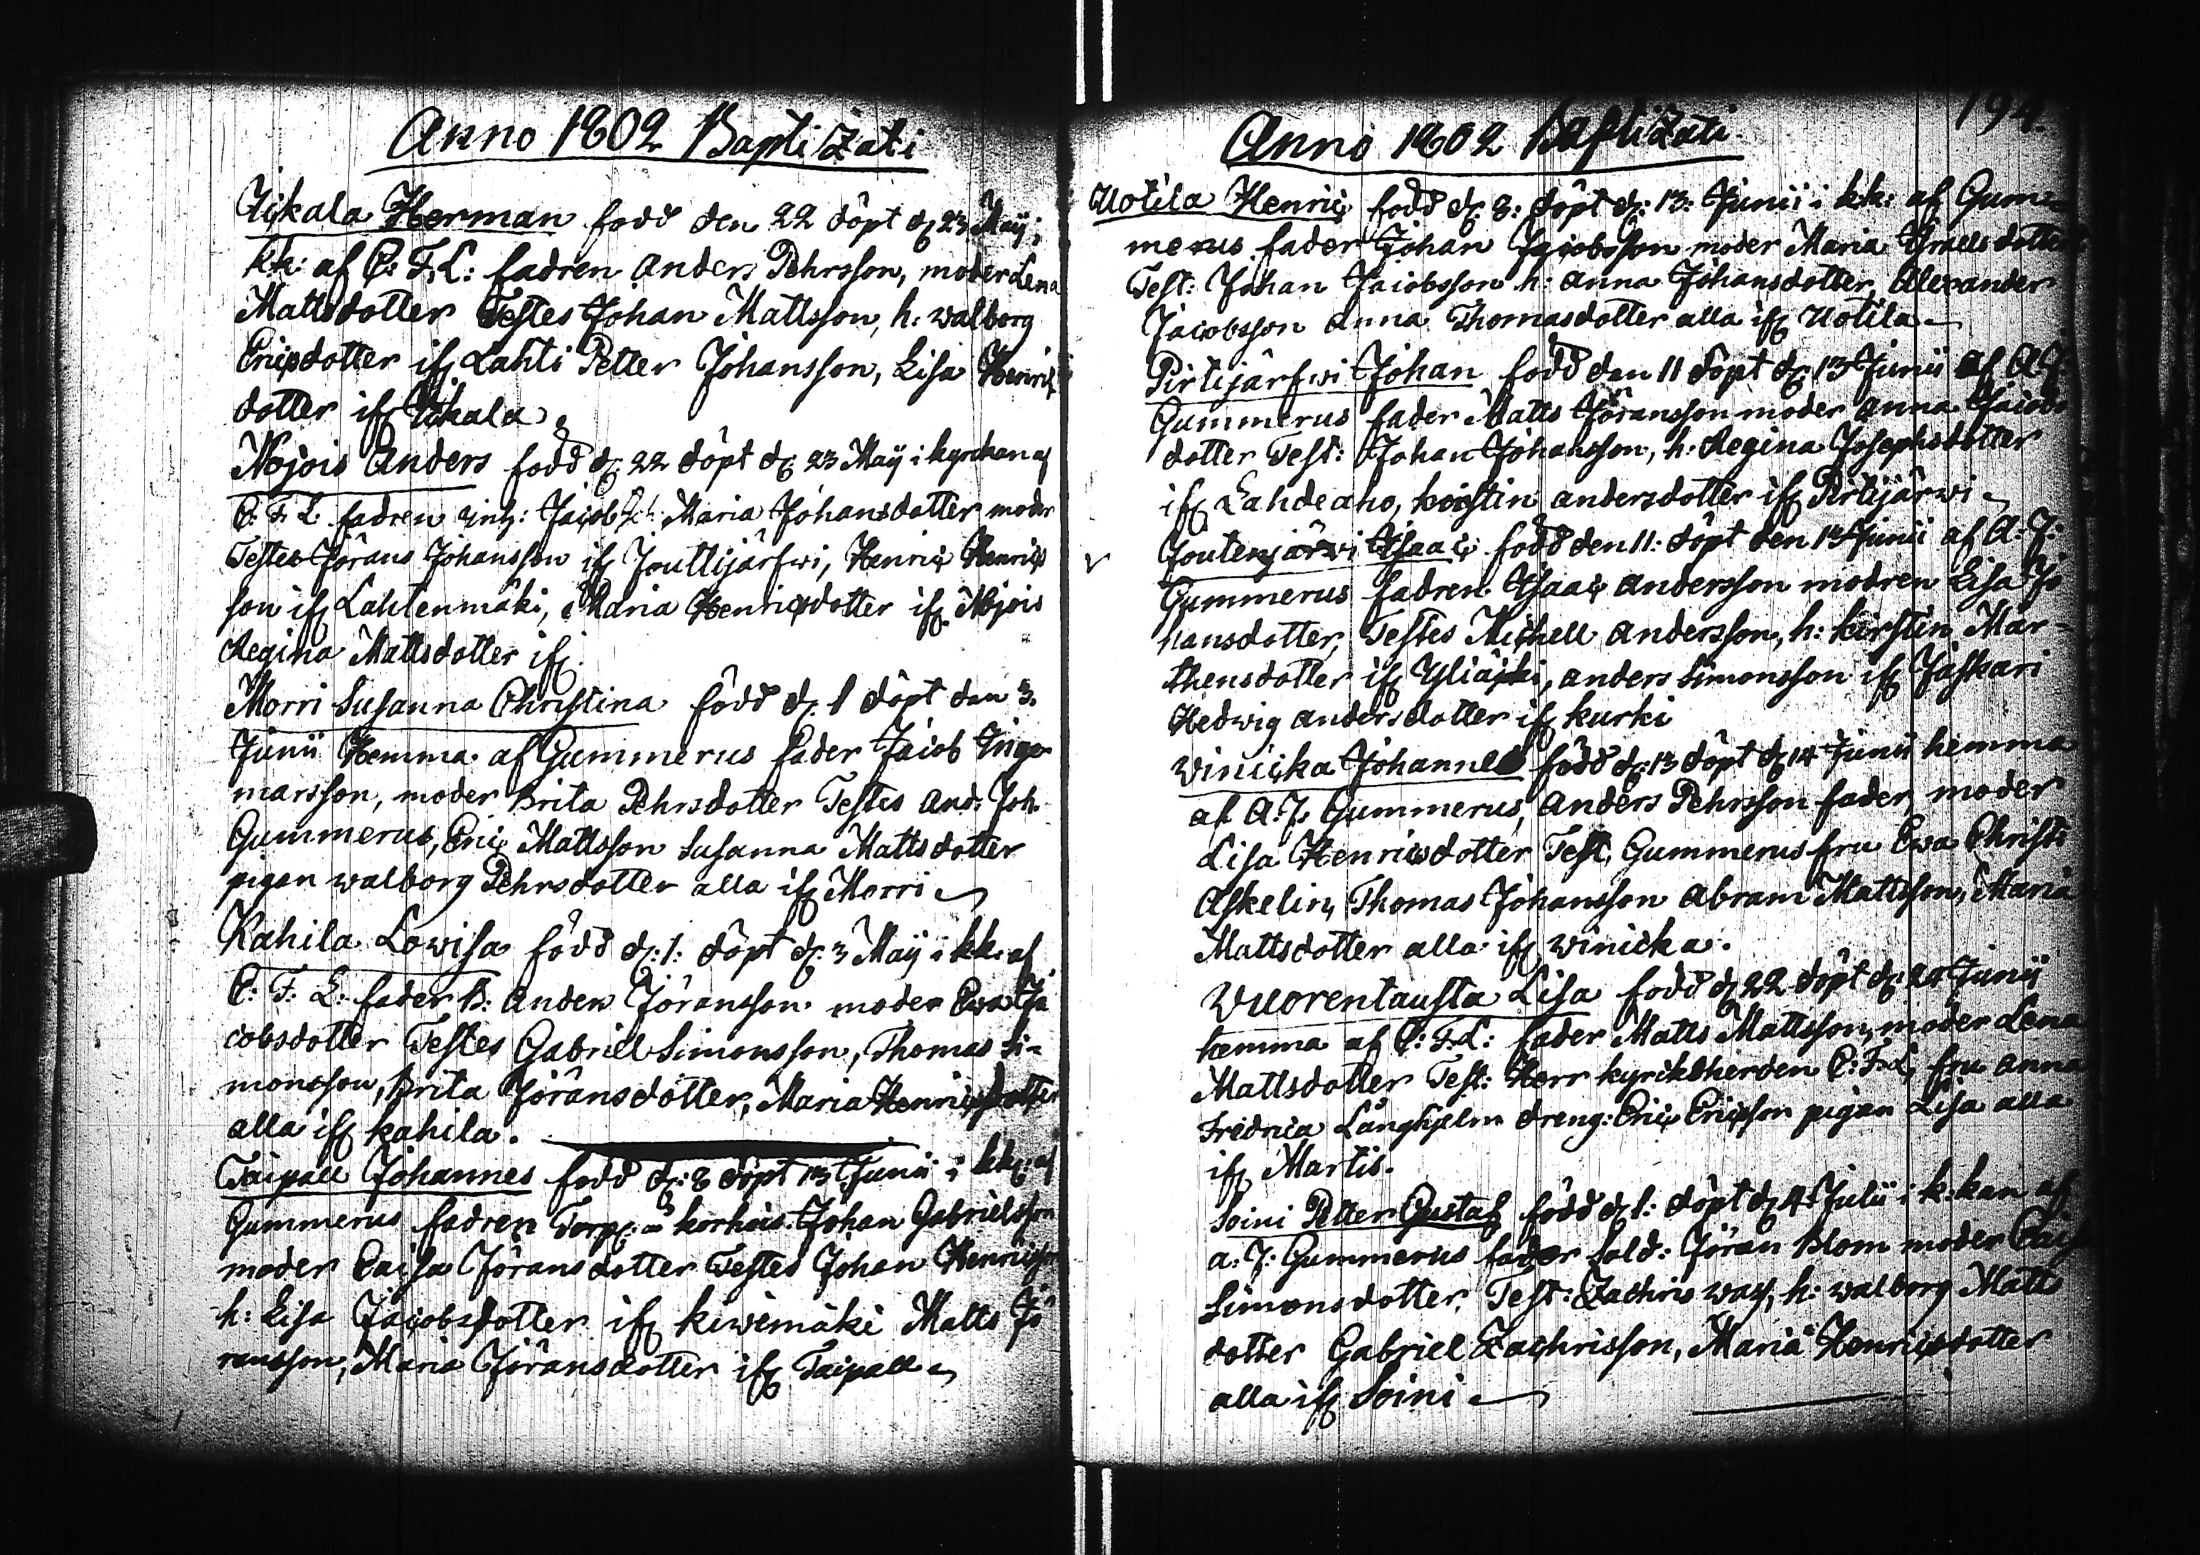 Anno 1802 Baptizati
Jickala Herman född den 22 döpt d: 23 Maij i
kk: af C: F: L: fadren Anders Pehrsson, moder Lena
Mattsdotter Testes Johan Mattsson, h: Walborg
Ericsdotter ifr Lahti Petter Johansson, Lisa Henrics
dotter ifr Jickala
Nojois Anders född d: 22 döpt d: 23 Maij i kyrckan af
C: F: L: fadren inh: Jacob Maria Johansdotter moder
Testes Jörans Johansson ifr Jouttijärfwi, Henric Henrics
son ifr Lahtenmäki, Maria Henricsdotter ifr Nojois
Regina Mattsdotter ifr.
Morri Susanna Christina född d: 1 döpt den 3.
Junii Hemma af Gummerus fader Jacob Inge
marsson, moder Brita Pehrsdotter Testes And: Joh:
Gummerus, Eric Mattsson Susanna Mattsdotter
pigan Walborg Pehrsdotter alla ifr Morri
Kahila Lowisa född d: 1: döpt d: 3 Maij i kk: af
C: F: L: fader B: Anders Jöransson moder Ewa Ja
cobsdotter Testes Gabriel Simonsson, Thomas Si=
monsson, Brita Jöransdotter, Maria Henricsdotter
alla ifr Kahila.
Taipall Johannes född d: 8 döpt 13 Junii i kk: af
Gummerus fadren Torp: Johan Gabrielsson
moder Caisa Jöransdotter Testes Johan Henricsson
h: Lisa Jacobsdotter ifr Kiwimäki Matts Jö
ransson, Maria Jöransdotter ifr Taipall
194.
Anno 1802 Baptizati
Uotila Henric född d: 8: döpt d: 13: Junii i kk: af Gum=
merus fader Johan Jacobsson moder Maria Israelsdotter
Test: Johan Jacobsson h: Anna Johansdotter, Alexander
Jacobsson Anna Thomasdotter alla ifr Uotila
Pirtijärfwi Johan född den 11 döpt d: 13 Junii af A. J.
Gummerus fader Matts Jöransson moder Anna Jacobs
dotter Test: Johan Johansson, h: Regina Josephsdotter
ifr Lahdeaho, Kirstin Andersdotter ifr Pirtijärwi
Joutenjärwi Isaac född den 11: döpt den 13 Junii af A: J:
Gummerus fadren Isaac Andersson modren Lisa Jo
hansdotter, Testes Michell Andersson, h: Kirstin Mar=
thensdotter ifr Yliäjki, Anders Simonsson ifr Jaskari
Hedwig Andersdotter ifr Kurki
Winicka Johannes född d: 13 döpt d: 14 Junii hemma
af A. J. Gummerus, Anders Pehrsson fader, moder
Lisa Henricsdotter Test, Gummerus fru Ewa Christi
Askelin, Thomas Johansson Abram Mattsson, Maria
Mattsdotter alla ifr Winicka.
Wuorentausta Lisa född d: 22 döpt d: 24 Junii
hemma af C: F: L: fader Matts Mattsson, moder Lena
Mattsdotter Test: Herr kyrckherden C: F: L, fru Anna
Fridrica Långhjelm dreng: Eric Ericsson pigan Lisa alla
ifr Martis.
Soini Petter Gustaf född d. 1: döpt d: 4: Julii i k:kan af
A. J: Gummerus fader Sold: Jöran Blom moder Caisa
Simonsdotter, Test: Zachris Wass, h: Walborg Matts
dotter Gabriel Zachrisson, Maria Henricsdotter
alla ifr Soini